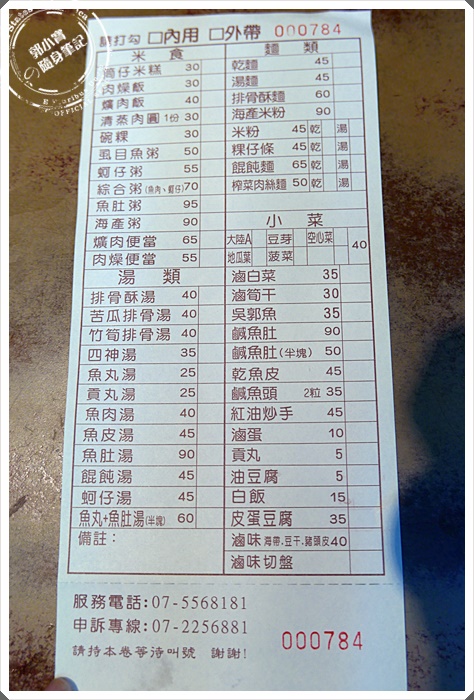 郭小寶
の隨身筆記
OFFICIAL
請打勾 □內用 □外帶 000784
米食
筒仔米糕 30
肉燥飯 30
爌肉飯 40
清蒸肉圓 1份 30
碗粿 30
虱目魚粥 50
蚵仔粥 55
綜合粥(魚肉、蚵仔) 70
魚肚粥 95
海產粥 90
爌肉便當 65
肉燥便當 55
湯類
排骨酥湯 40
苦瓜排骨湯 40
竹筍排骨湯 40
四神湯 35
魚丸湯 25
貢丸湯 25
魚肉湯 40
魚皮湯 45
魚肚湯 90
餛飩湯 45
蚵仔湯 45
魚丸+魚肚湯(半塊) 60
備註：
麵類
乾麵 45
湯麵 45
排骨酥麵 60
海產米粉 90
米粉 45 乾 湯
粿仔條 45 乾 湯
餛飩麵 65 乾 湯
榨菜肉絲麵 50 乾 湯
小菜
大陸A 豆芽 空心菜 40
地瓜葉 菠菜
滷白菜 35
滷筍干 30
吳郭魚 35
鹹魚肚 90
鹹魚肚(半塊) 50
乾魚皮 45
鹹魚頭 2粒 35
紅油炒手 45
滷蛋 10
貢丸 5
油豆腐 5
白飯 15
皮蛋豆腐 35
滷味 海帶、豆干、豬頭皮 40
滷味切盤
服務電話:07-5568181
申訴專線:07-2256881
請持本卷等待叫號 謝謝!
000784